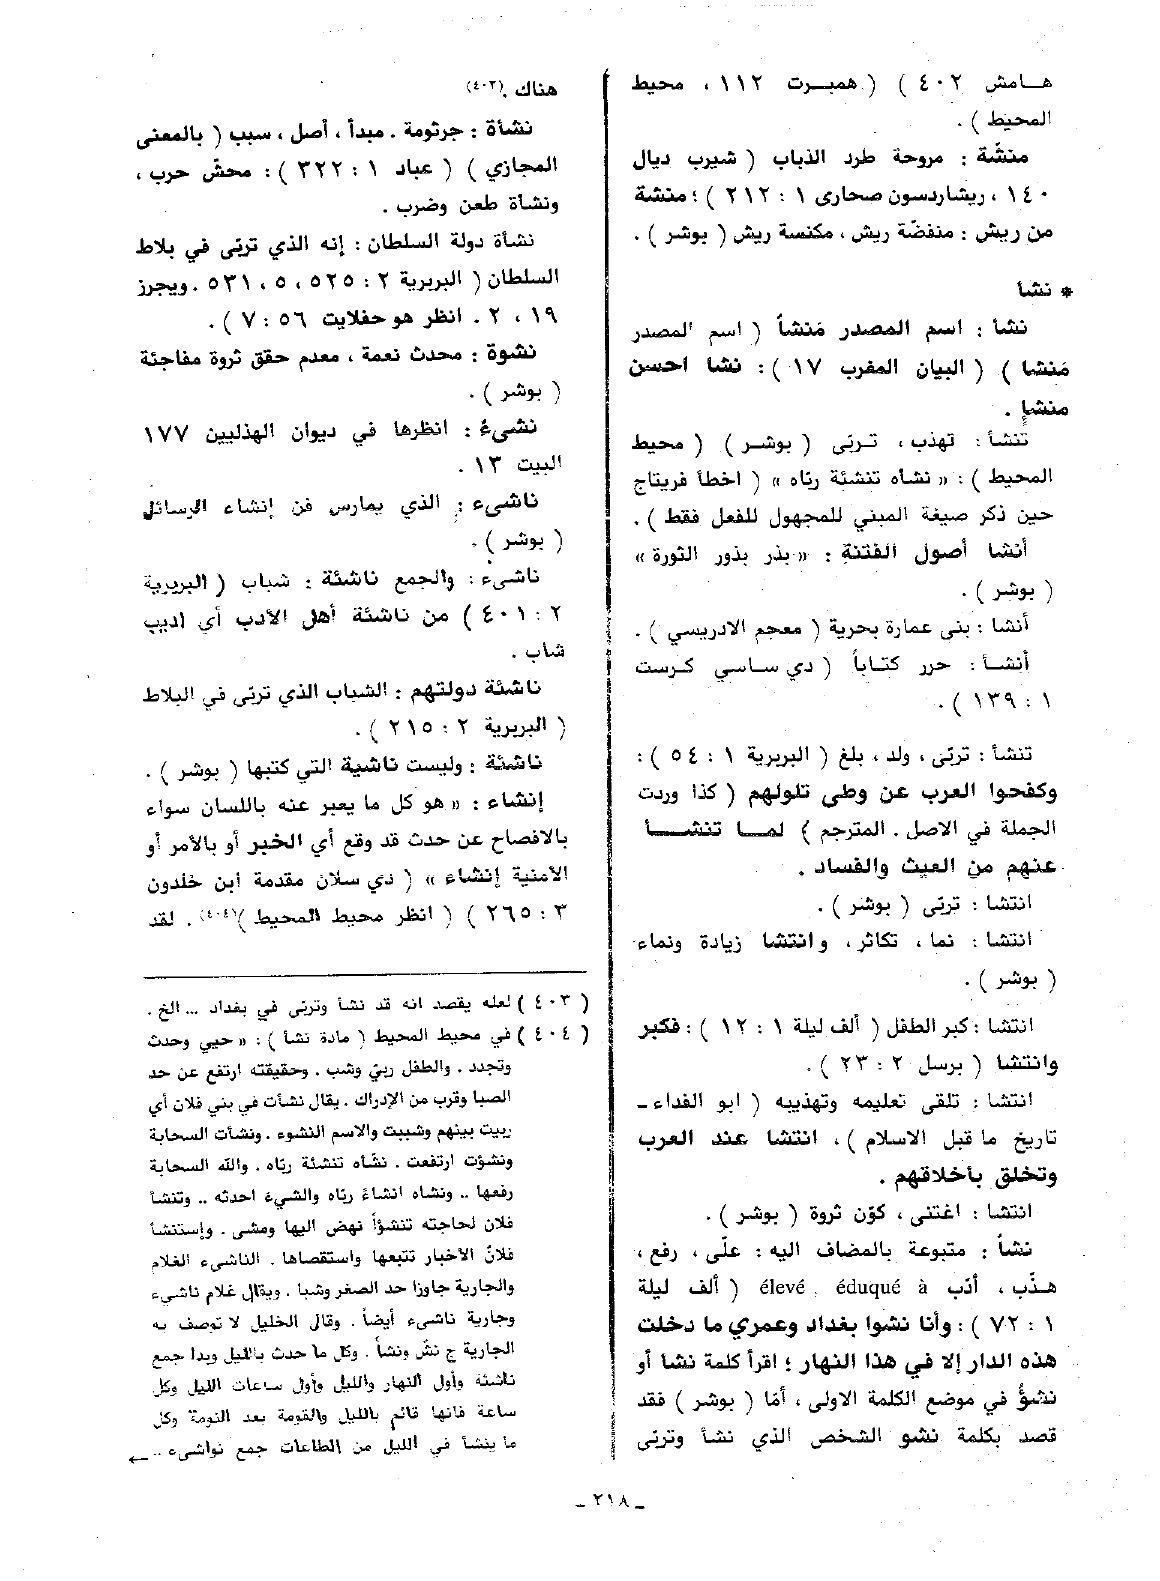 هامش ٤٠٢ ) ( همبرت ١١٢ ، محيط
المحيط ) .
منشّة : مروحة طرد الذباب ( شيرب ديال
١٤٠ ، ريشاردسون صحارى ١ : ٢١٢ ) ؛ منشة
من ريش : منفضّة ريش ، مكنسة ريش ( بوشر ) .
* نشا
نشا : اسم المصدر مَنشأ ( اسم المصدر
مَنشا ) ( البيان المغرب ١٧ ) : نشا احسن
منشاٍ .
تنشأ : تهذب ، تربّى ( بوشر ) ( محيط
المحيط ) : « نشاه تنشئة ربّاه » ( اخطأ فريتاج
حين ذكر صيغة المبني للمجهول للفعل فقط ) .
أنشا أصول الفتنة : « بذر بذور الثورة »
( بوشر ) .
أنشا : بنى عمارة بحرية ( معجم الادريسي ) .
أنشأ : حرر كتاباً ( دي ساسي كرست
١ : ١٣٩ ) .
تنشأ : تربّى ، ولد ، بلغ ( البربرية ١ : ٥٤ ) :
وكفحوا العرب عن وطي تلولهم ( كذا وردت
الجملة في الاصل . المترجم ) لما تنشأ
عنهم من العيث والفساد .
انتشا : تربّى ( بوشر ) .
انتشا : نما ، تكاثر ، وانتشا زيادة ونماء
( بوشر ) .
انتشا : كبر الطفل ( ألف ليلة ١ : ١٢ ) : فكبر
وانتشا ( برسل ٢ : ٢٣ ) .
انتشا : تلقى تعليمه وتهذيبه ( ابو الفداء -
تاريخ ما قبل الاسلام ) ، انتشا عند العرب
وتخلق بأخلاقهم .
انتشا : اغتنى ، كوّن ثروة ( بوشر ) .
نشأ : متبوعة بالمضاف اليه : علّى ، رفع ،
هذّب ، أدّب élevé , éduqué à ( ألف ليلة
١ : ٧٢ ) : وأنا نشوا بغداد وعمري ما دخلت
هذه الدار إلا في هذا النهار ؛ اقرأ كلمة نشا أو
نشؤُ في موضع الكلمة الاولى ، أمّا ( بوشر ) فقد
قصد بكلمة نشو الشخص الذي نشأ وتربّى
هناك .(٤٠٣)
نشأة : جرثومة . مبدأ ، أصل ، سبب ( بالمعنى
المجازي ) ( عباد ١ : ٣٢٢ ) : محشّ حرب ،
ونشأة طعن وضرب .
نشأة دولة السلطان : إنه الذي تربّى في بلاط
السلطان ( البربرية ٢ : ٥٢٥ ، ٥ ، ٥٣١ . ويجرز
١٩ ، ٢ . انظر هو حفلايت ٥٦ : ٧ ) .
نشوة : محدث نعمة ، معدم حقق ثروة مفاجئة
( بوشر ) .
نشىءُ : انظرها في ديوان الهذليين ١٧٧
البيت ١٣ .
ناشىء : الذي يمارس فن إنشاء الرسائل
( بوشر ) .
ناشىء : والجمع ناشئة : شباب ( البربرية
٢ : ٤٠١ ) من ناشئة أهل الأدب أي اديب
شاب .
ناشئة دولتهم : الشباب الذي تربّى في البلاط
( البربرية ٢ : ٢١٥ ) .
ناشئة : وليست ناشية التي كتبها ( بوشر ) .
إنشاء : « هو كل ما يعبر عنه باللسان سواء
بالافصاح عن حدث قد وقع أي الخبر أو بالأمر أو
الأمنية إنشاء » ( دي سلان مقدمة أبن خلدون
٣ : ٢٦٥ ) ( انظر محيط المحيط )(٤٠٤) . لقد
( ٤٠٣ ) لعله يقصد انه قد نشأ وتربّى في بغداد ... الخ .
( ٤٠٤ ) في محيط المحيط ( مادة نشأ ) : « حيي وحدث
وتجدد . والطفل ربيَ وشب . وحقيقته ارتفع عن حد
الصبا وقرب من الإدراك . يقال نشأت في بني فلان أي
ربيت بينهم وشببت والاسم النشوء . ونشأت السحابة
ونشؤت ارتفعت . نشّأه تنشئة ربّاه . والله السحابة
رفعها .. ونشاه انشاءً ربّاه والشيءَ احدثه .. وتنشأ
فلان لحاجته تنشؤاً نهض اليها ومشى . وإستنشأ
فلانٌ الأخبار تتبعها واستقصاها . الناشىء الغلام
والجارية جاوزا حد الصغر وشبا . ويقال غلام ناشىء
وجارية ناشىء أيضاً . وقال الخليل لا توصف به
الجارية ج نشْ ونشأ . وكل ما حدث بالليل وبدا جمع
ناشئة وأول النهار والليل وأول ساعات الليل وكل
ساعة قانها قائم بالليل والقومة بعد النومة وكل
ما ينشأ في الليل من الطاعات جمع نواشىء .. ←
- ٢١٨ -